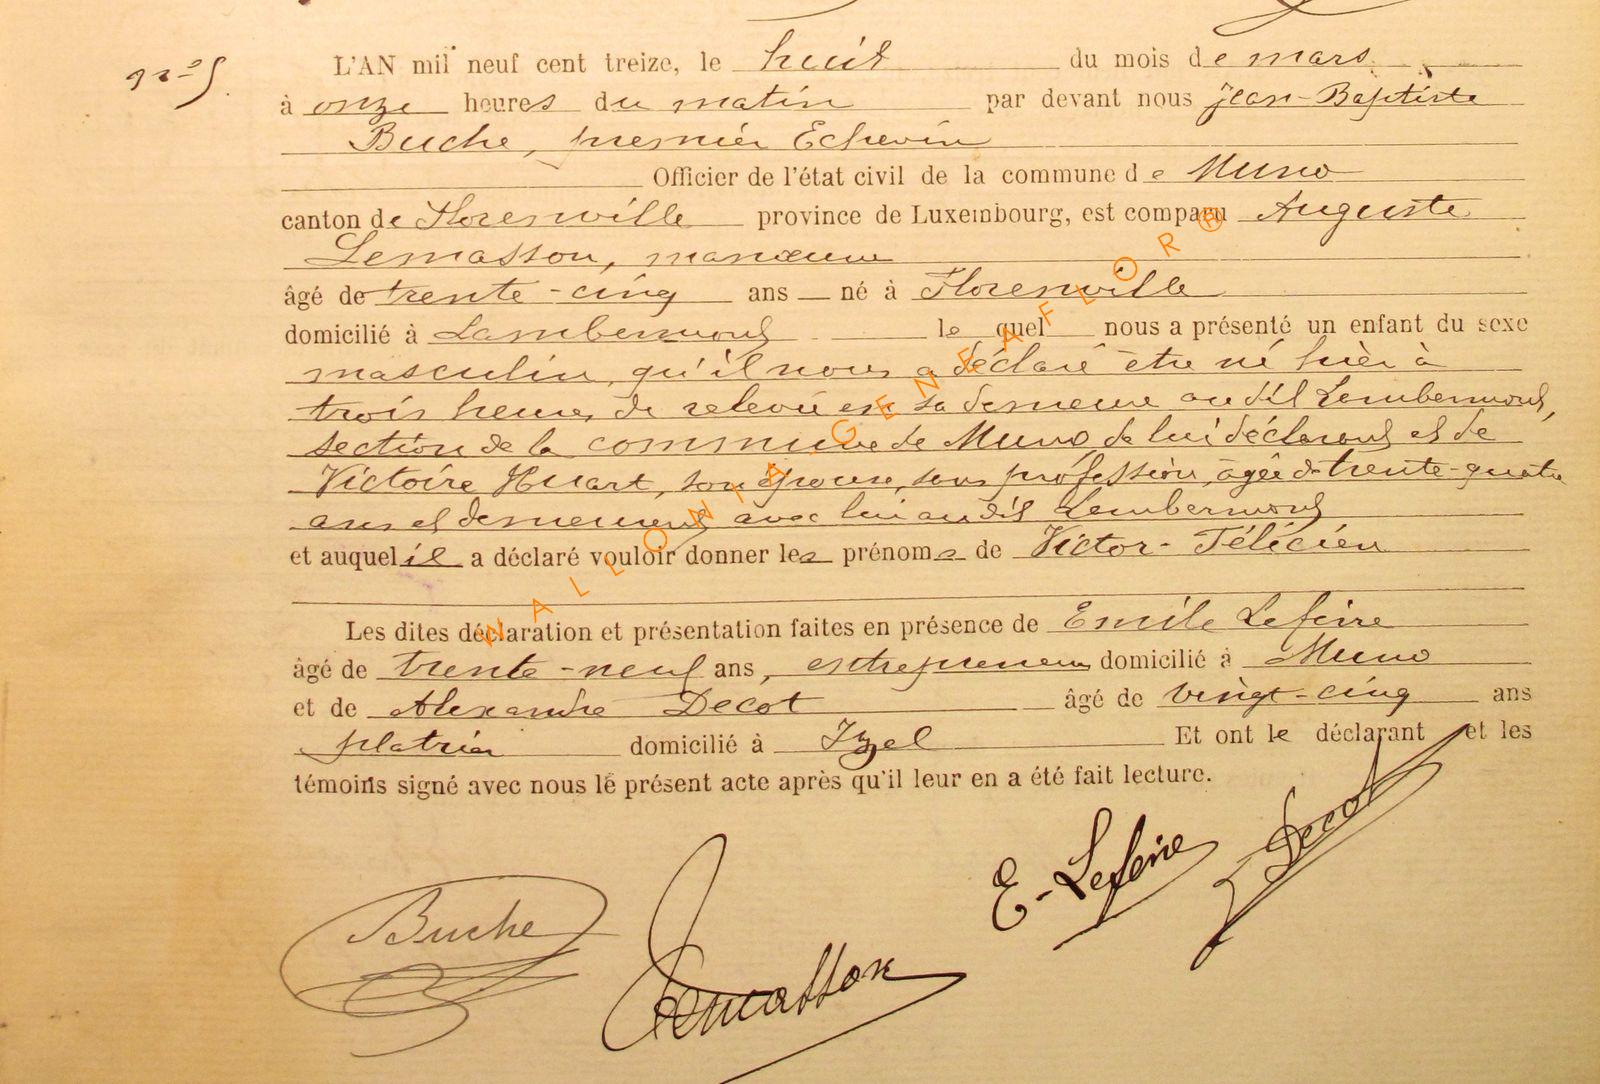 n° 5.
L'AN mil neuf cent treize, le huit du mois de mars
à onze heures du matin par devant nous Jean-Baptiste
Buche, premier Echevin
Officier de l'état civil de la commune de Muno
canton de Florenville province de Luxembourg, est comparu Auguste
Lemasson, manœuvre
âgé de trente-cinq ans né à Florenville
domicilié à Lambermont lequel nous a présenté un enfant du sexe
masculin, qu'il nous a déclaré être né hier à
trois heures de relevée en sa demeure au dit Lambermont,
section de la commune de Muno, de lui déclarant et de
Victoire Huart, son épouse, sans profession, âgée de trente-quatre
ans et demeurant avec lui au dit Lambermont
et auquel il a déclaré vouloir donner les prénoms de Victor-Félicien
Les dites déclaration et présentation faites en présence de Emile Lefèvre
âgé de trente-neuf ans, entrepreneur domicilié à Muno
et de Alexandre Decot âgé de vingt-cinq ans
platrier domicilié à Izel Et ont le déclarant et les
témoins signé avec nous le présent acte après qu'il leur en a été fait lecture.
E. Lefèvre Decot
Buche Lemasson
WALLONIA.GENEAFLOR®